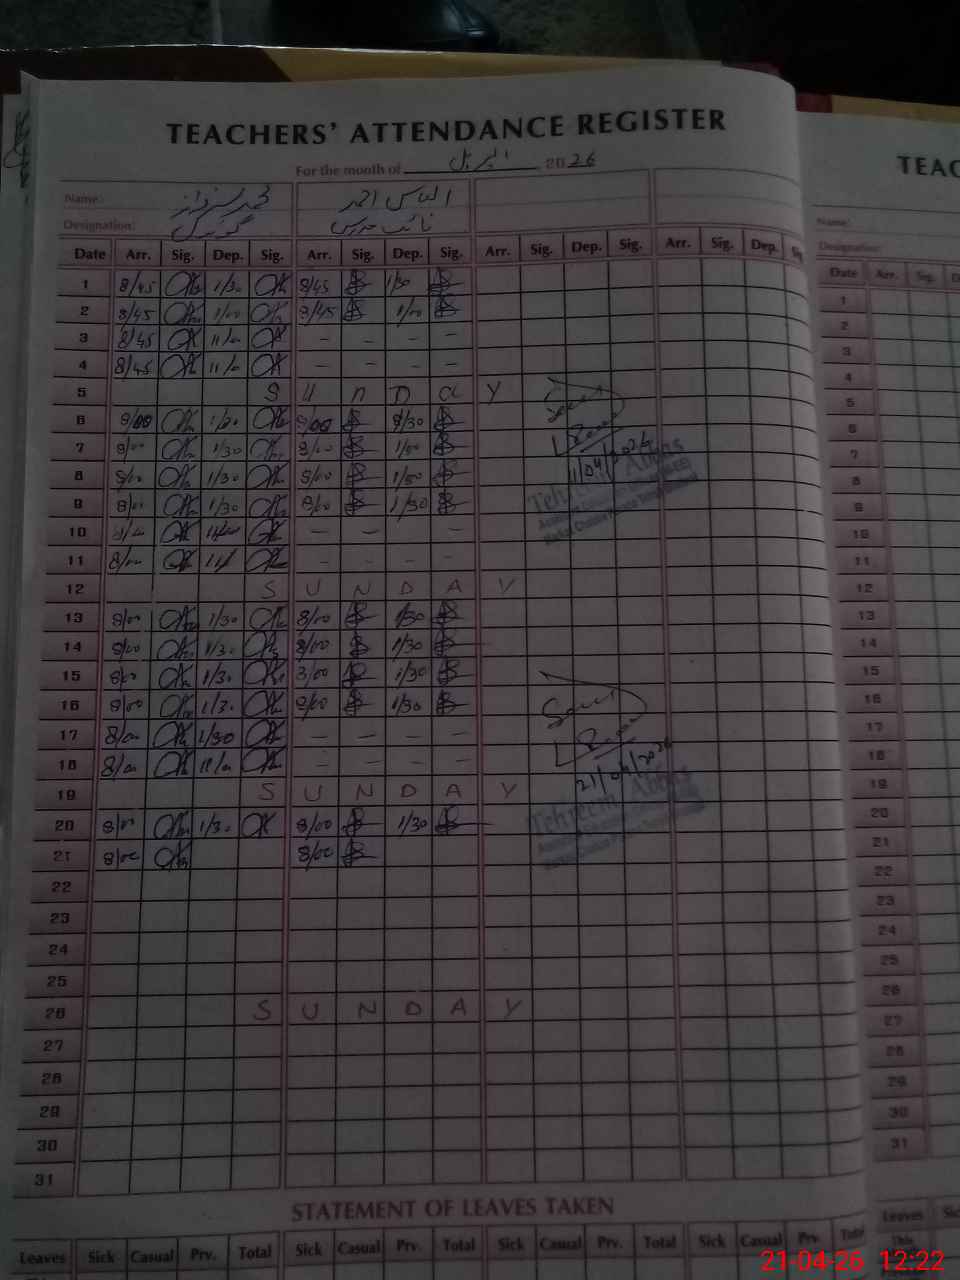 TEACHERS' ATTENDANCE REGISTER
For the month of اپریل 2026
Name: محمد سرفراز الماس احمد
Designation: نائب مدرس
Date Arr. Sig. Dep. Sig. Arr. Sig. Dep. Sig. Arr. Sig. Dep. Sig. Arr. Sig. Dep. Sig.
1 8/45 1/30 8/45 1/30
2 8/45 1/00 8/45 1/00
3 8/45 11/00 – – – –
4 8/45 11/00 – – – –
5 S U n D a Y
6 8/00 1/30 8/00 /30
7 8/00 1/30 8/00 1/00
8 8/00 1/30 8/00 1/00
9 8/00 1/30 8/00 1/30
10 8/00 – – – –
11 8/00 – – – –
12 S U N D A Y
13 8/00 1/30 8/00 1/30
14 8/00 1/30 8/00 1/30
15 8/00 1/30 8/00 1/30
16 8/00 1/30 8/00 1/30
17 8/00 1/30 – – – –
18 8/00 11/00 – – – –
19 S U N D A Y
20 8/00 1/30 8/00 1/30
21 8/00 8/00
22
23
24
25
26 S U N D A Y
27
28
29
30
31
21/04/2026
Tehreem Abbas
Tehreem Abbas
STATEMENT OF LEAVES TAKEN
Leaves Sick Casual Prv. Total Sick Casual Prv. Total Sick Casual Prv. Total Sick Casual Prv. Total
TEAC
Name:
Designation:
Date Arr. Sig. D
1
2
3
4
5
6
7
8
9
10
11
12
13
14
15
16
17
18
19
20
21
22
23
24
25
26
27
28
29
30
31
Leaves Sic
This
21-04-26 12:22